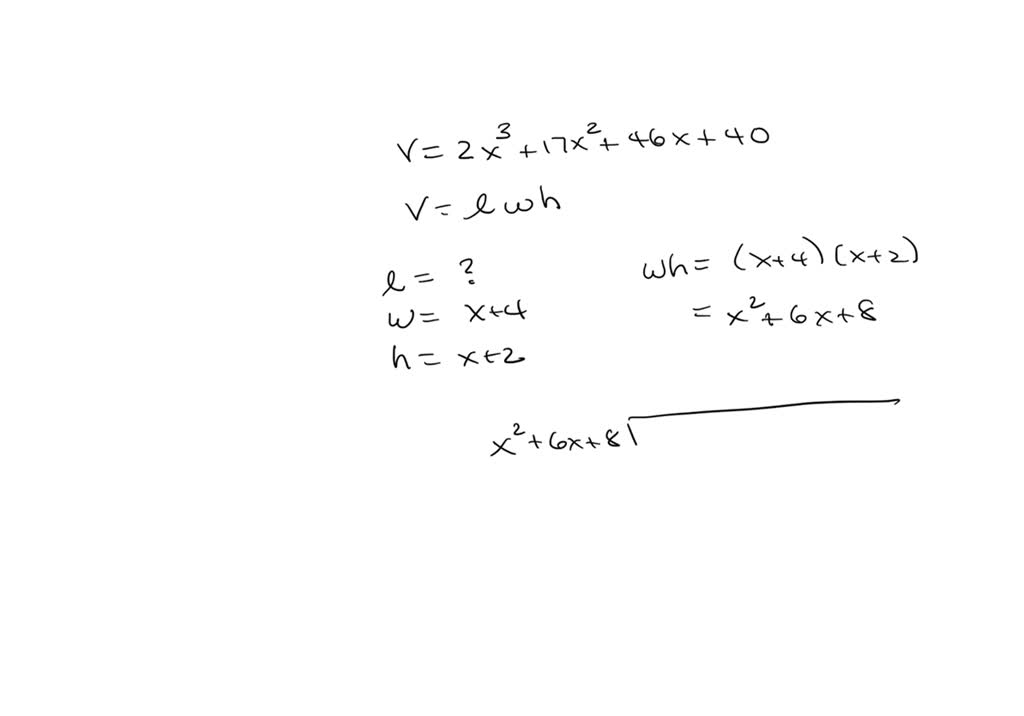 V = 2x³ + 17x² + 46x + 40
V = l w h
l = ?
w = x+4
h = x+2
wh = (x+4)(x+2)
= x² + 6x + 8
x² + 6x + 8